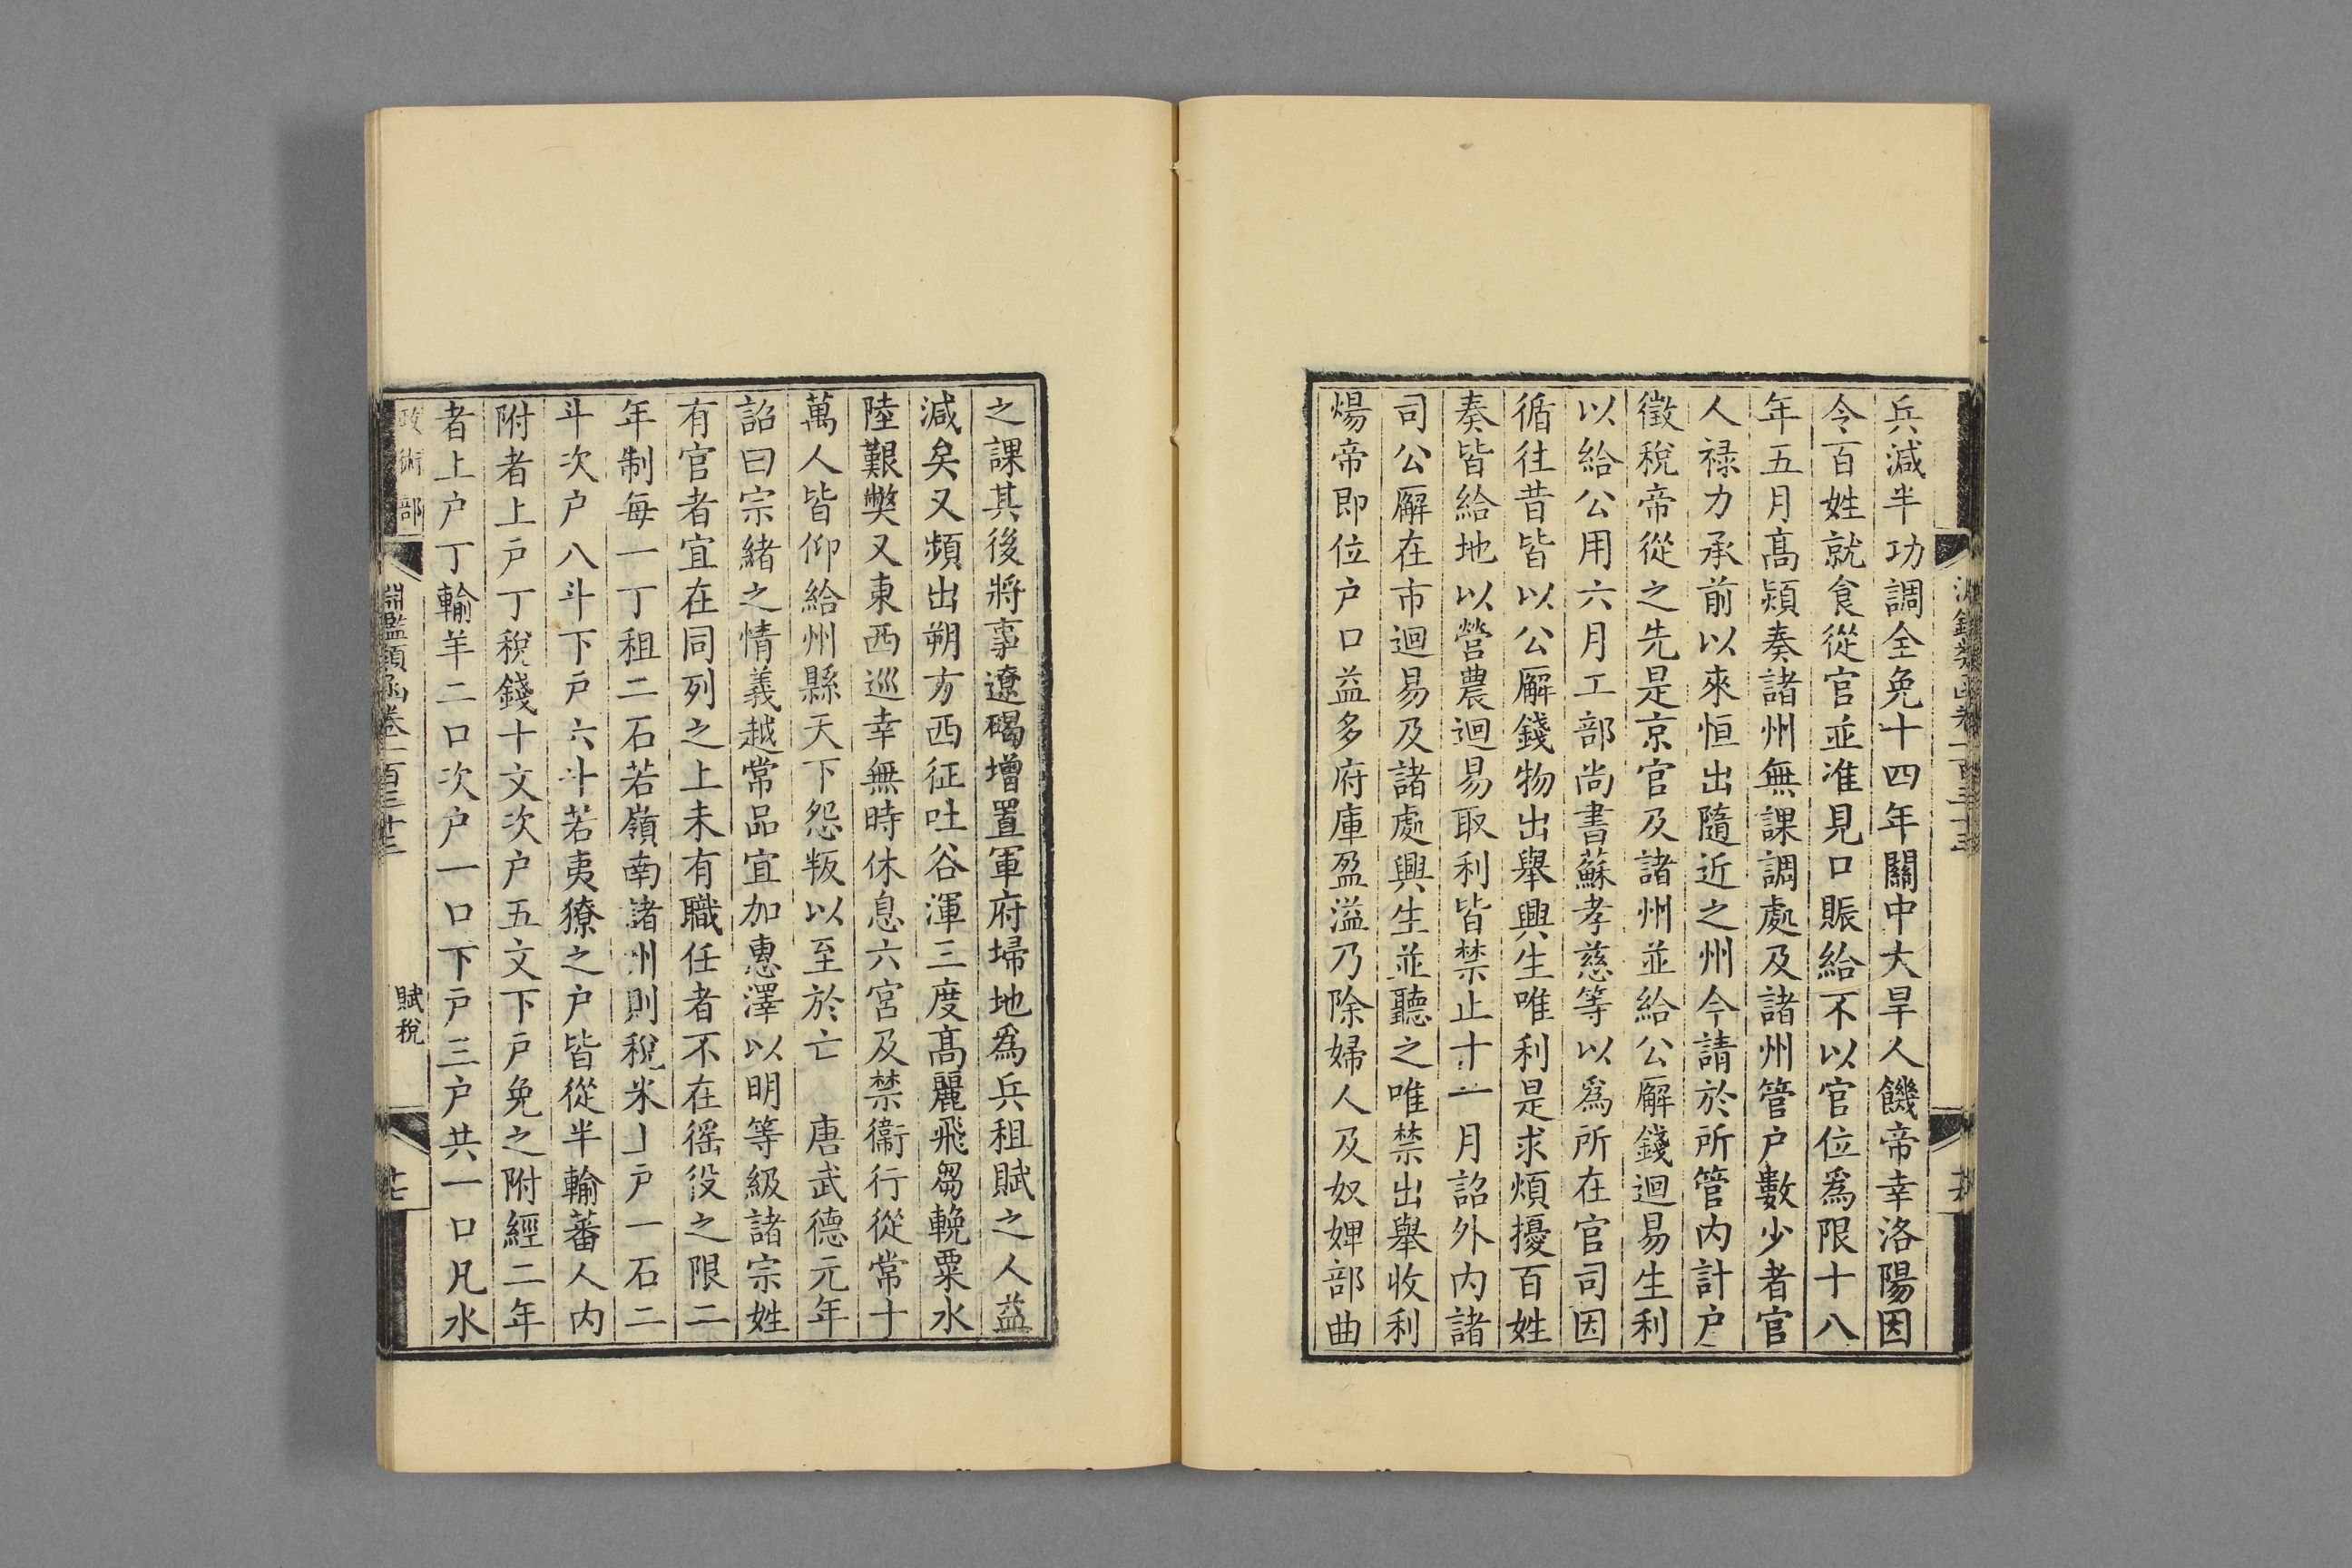 兵減半功調全免十四年關中大旱人饑帝幸洛陽因
令百姓就食從官並准見口賑給不以官位爲限十八
年五月高熲奏諸州無課調處及諸州管户數少者官
人禄力承前以來恒出隨近之州今請於所管内計户
徵稅帝從之先是京官及諸州並給公廨錢迴易生利
以給公用六月工部尚書蘇孝慈等以爲所在官司因
循往昔皆以公廨錢物出舉興生唯利是求煩擾百姓
奏皆給地以營農迴易取利皆禁止十一月詔外内諸
司公廨在市迴易及諸處興生並聽之唯禁出舉收利
煬帝即位户口益多府庫盈溢乃除婦人及奴婢部曲
之課其後將事遼碣增置軍府埽地爲兵租賦之人益
減矣又頻出朔方西征吐谷渾三度高麗飛芻輓粟水
陸艱獘又東西巡幸無時休息六宮及禁衞行從常十
萬人皆仰給州縣天下怨叛以至於亡　唐武德元年
詔曰宗緒之情義越常品宜加惠澤以明等級諸宗姓
有官者宜在同列之上未有職任者不在徭役之限二
年制每一丁租二石若嶺南諸州則稅米上户一石二
斗次户八斗下户六斗若夷獠之户皆從半輸蕃人内
附者上户丁稅錢十文次户五文下户免之附經二年
者上户丁輸羊二口次户一口下户三户共一口凡水
政術部　淵鑑類函卷一百三十三　賦稅　十七